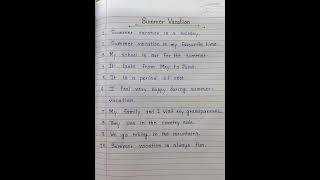 Summer Vacation
1. Summer vacation is a holiday.
2. Summer vacation is my favourite time.
3. My school is out for the summer.
4. It lasts from May to June.
5. It is a period of rest.
6. I feel very happy during summer
vacation.
7. My family and I visit my grandparents.
8. They live in the country side.
9. We go hiking in the mountains.
10. Summer vacation is always fun.